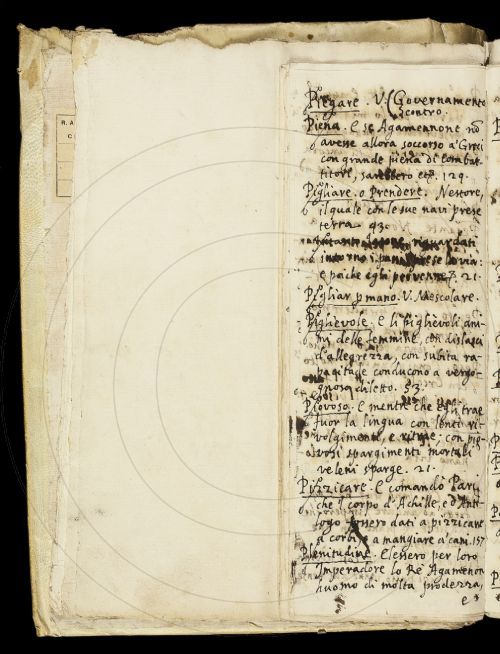 R. A
C
Piegare. V. (Governamento
contro.
Piena. E se Agamennone nō
avesse allora soccorso a' Greci
con grande piena di combat-
titori, sarebbero etc. 129.
Pigliare. o Prendere. Nestore,
il quale con le sue navi prese
terra. 93.
intorno i panni prese la via:
e poiche egli pervenne 21.
Pigliar p mano. V. Mescolare.
Pighevole. E li pighevoli ani-
mi delle femmine, con dislasci
d'allegrezza, con subita ra-
pacitade conducono a vergo-
gnoso diletto. 53.
Piovoso. E mentre che egli trae
fuor la lingua con lenti ri-
volgimenti, e ; con pio-
vosi spargimenti mortali
veleni sparge. 21.
Pizzicare. E comandò Pari,
che 'l corpo d'Achille, e d'Anti-
logo fossero dati a pizzicare
a' corbi, e a mangiare a' cani. 157
Plenitudine. Elesero per loro
Imperadore lo Re Agamenon
huomo di molta prodezza,
e